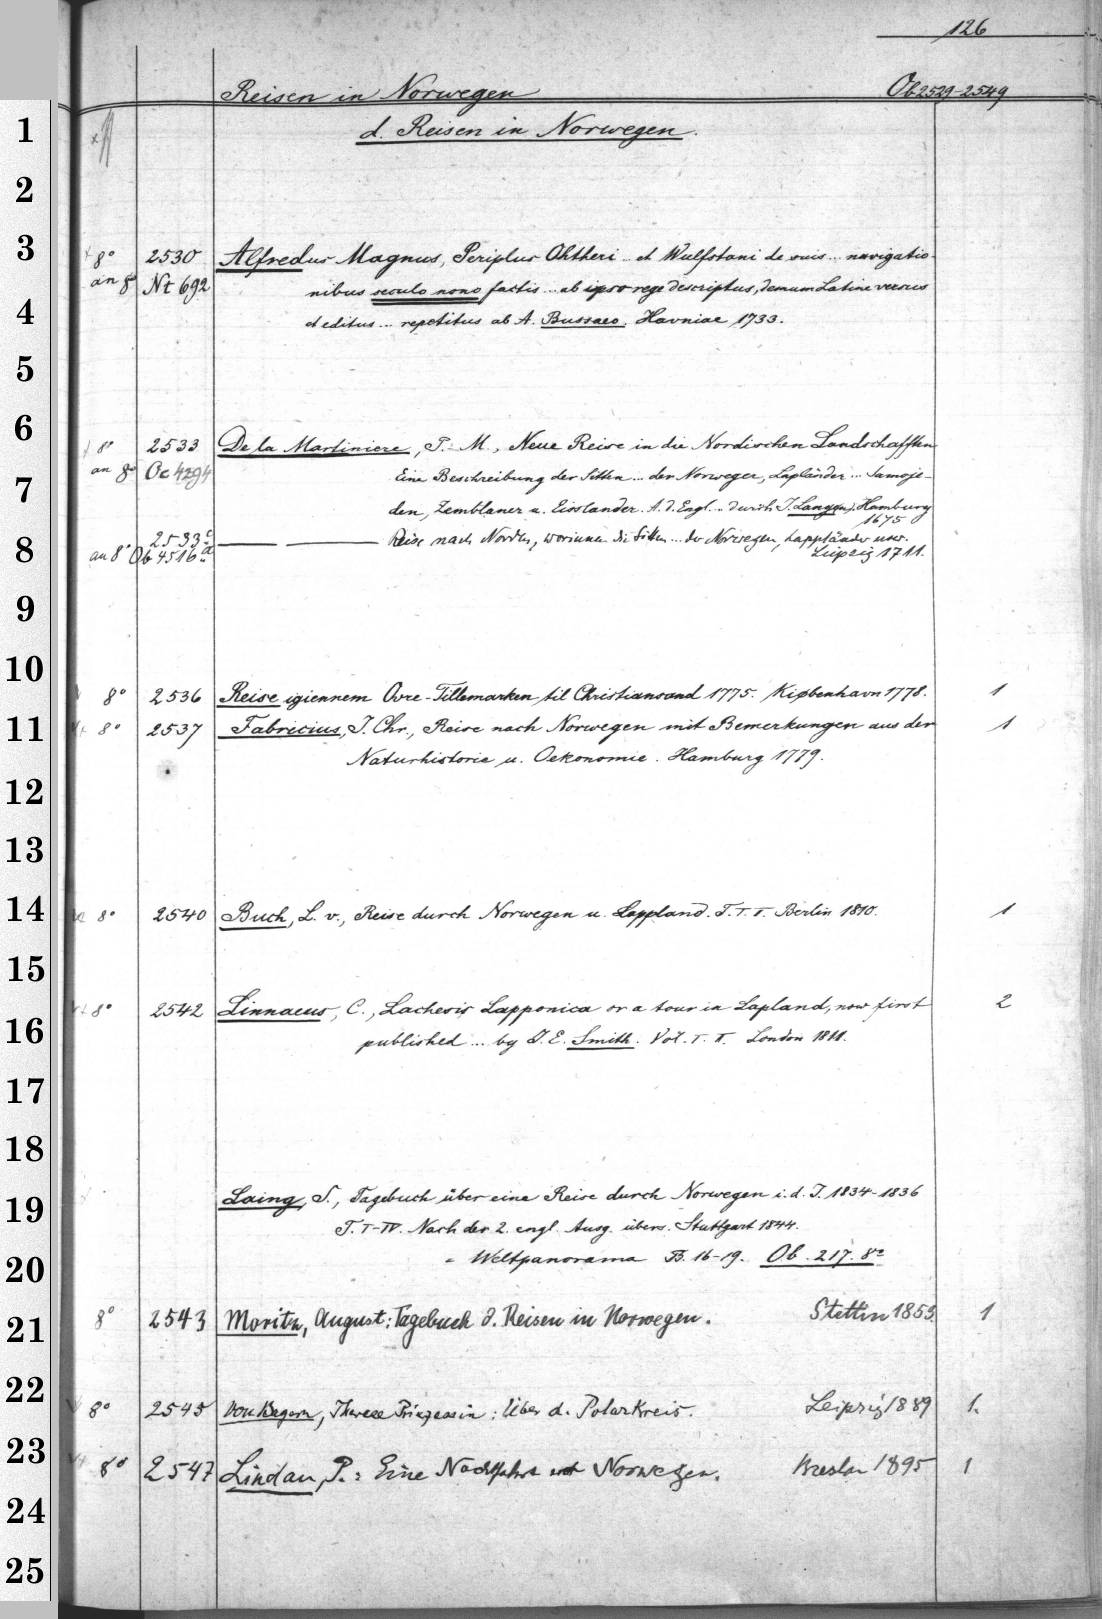 126
Reisen in Norwegen Ob 2529-2549
d. Reisen in Norwegen.
1
2
3
4
5
6
7
8
9
10
11
12
13
14
15
16
17
18
19
20
21
22
23
24
25
8° 2530 Alfredus Magnus, Periplus Ohtheri .. et Wulfstani de suis ... navigatio-
an 8° Nt 692 nibus seculo nono factis ... ab ipso rege descriptus, demum Latine versus
et editus ... repetitus ab A. Bussaeo. Havniae 1733.
8° 2533 De la Martiniere, P. M., Neue Reise in die Nordischen Landschafften
an 8° Oc 4294 Eine Beschreibung der Sitten ... der Norweger, Lapländer ... Samoje-
den, Zemblaner u. Eisslander. A. d. Engl. .. durch J. Langen. Hamburg
1675
2533 c — — Reise nach Norden, worinnen die Sitten ... der Norwegen, Lappländer usw.
an 8° Ob 4516 a Leipzig 1711.
8° 2536 Reise igiennem Ovre-Tillemarken til Christiansand 1775. Kiøbenhavn 1778. 1
8° 2537 Fabricius, J. Chr., Reise nach Norwegen mit Bemerkungen aus der 1
Naturhistorie u. Oekonomie. Hamburg 1779.
8° 2540 Buch, L. v., Reise durch Norwegen u. Lappland. T. I. II. Berlin 1810. 1
8° 2542 Linnaeus, C., Lachesis Lapponica or a tour in Lapland, now first 2
published ... by J. E. Smith. Vol. I. II. London 1811.
Laing, S., Tagebuch über eine Reise durch Norwegen i. d. J. 1834-1836
T. I-IV. Nach der 2. engl. Ausg. übers. Stuttgart 1844.
= Weltpanorama B. 16-19. Ob. 217. 8°
8° 2543 Moritz, August: Tagebuch d. Reisen in Norwegen. Stettin 1853 1
8° 2545 von Bayern, Therese Prinzessin: Über d. Polarkreis. Leipzig 1889 1.
8° 2547 Lindau, P.: Eine Nordfahrt Norwegen. Breslau 1895 1